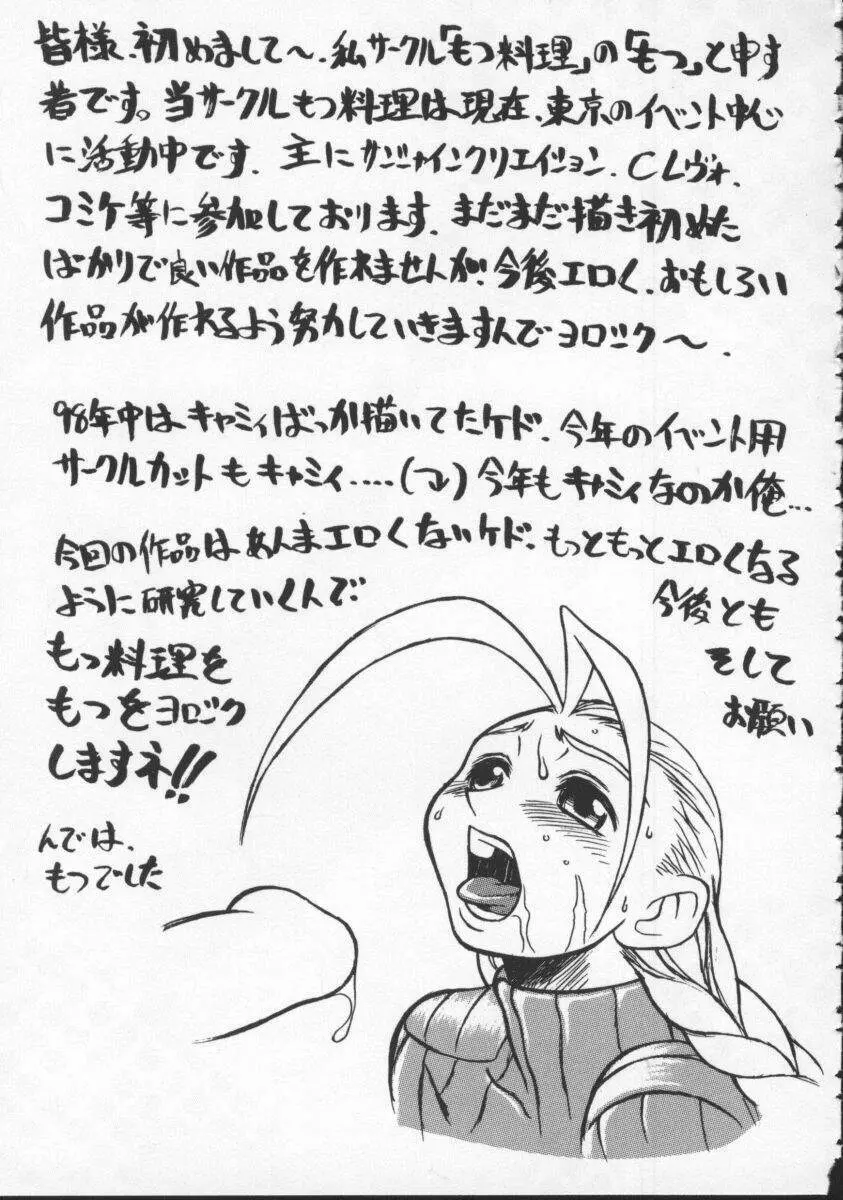 皆様、初めまして〜、私サークル「もつ料理」の「もつ」と申す
者です。当サークルもつ料理は現在、東京のイベント中心
に活動中です。主にサンシャインクリエイション、CLヴォ、
コミケ等に参加しております。まだまだ描き初めた
ばかりで良い作品を作れませんが、今後エロく、おもしろい
作品が作れるよう努力していきますんでヨロシク〜。
98年中はキャミィばっか描いてたケド、今年のイベント用
サークルカットもキャミィ....(つレ)今年もキャミィなのか俺...
今回の作品はあんまエロくないケド、もっともっとエロくなる
ように研究していくんで
今後とも
もつ料理を
そして
もつをヨロシク
お願い
しますネ!!
んでは、
もつでした